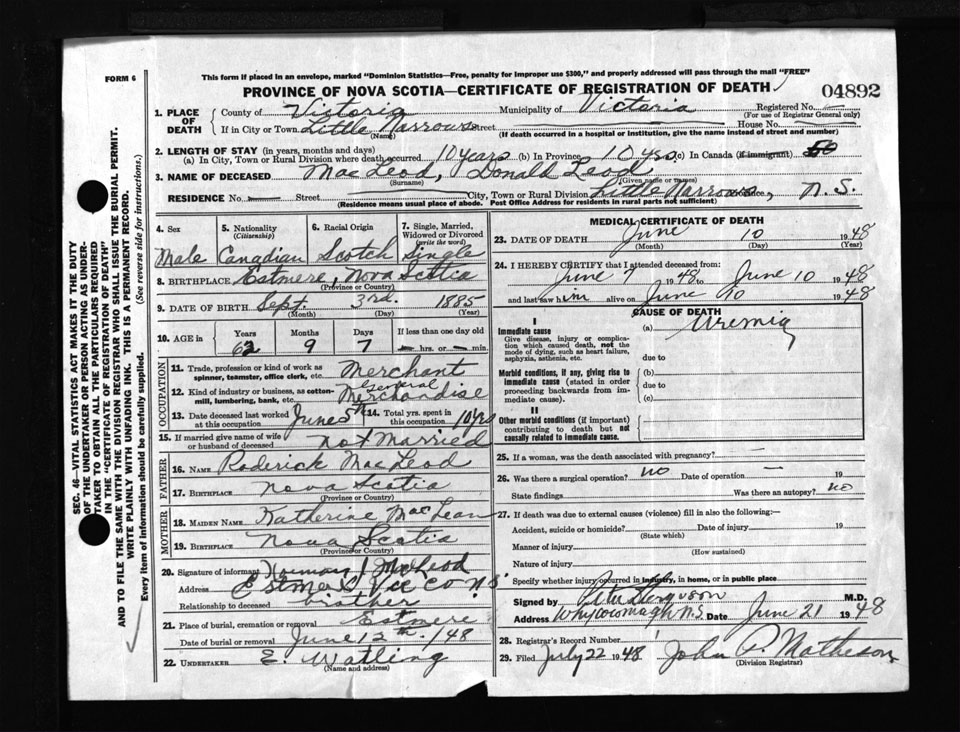 FORM 6
This form if placed in an envelope, marked "Dominion Statistics—Free, penalty for improper use $300," and properly addressed will pass through the mail "FREE"
PROVINCE OF NOVA SCOTIA—CERTIFICATE OF REGISTRATION OF DEATH
04892
1. PLACE OF DEATH
County of Victoria Municipality of Victoria Registered No. —
(For use of Registrar General only)
If in City or Town Little Narrows Street House No.
(Name) (If death occurred in a hospital or institution, give the name instead of street and number)
2. LENGTH OF STAY (in years, months and days)
(a) In City, Town or Rural Division where death occurred 10 years (b) In Province 10 yrs. (c) In Canada (if immigrant)
3. NAME OF DECEASED MacLeod, Donald Leod
(Surname) (Given name or names)
RESIDENCE No. — Street City, Town or Rural Division Little Narrows, N.S.
(Residence means usual place of abode. Post Office Address for residents in rural parts not sufficient)
4. Sex 5. Nationality (Citizenship) 6. Racial Origin 7. Single, Married, Widowed or Divorced (write the word)
Male Canadian Scotch Single
8. BIRTHPLACE Estmere, Nova Scotia
(Province or Country)
9. DATE OF BIRTH Sept. 3rd. 1885
(Month) (Day) (Year)
10. AGE in Years Months Days If less than one day old
62 9 7 — hrs. or — min.
OCCUPATION
11. Trade, profession or kind of work as spinner, teamster, office clerk, etc. Merchant
12. Kind of industry or business, as cotton-mill, lumbering, bank, etc. General Merchandise
13. Date deceased last worked at this occupation June 5th 14. Total yrs. spent in this occupation 10 yrs
15. If married give name of wife or husband of deceased not Married
FATHER
16. NAME Roderick MacLeod
17. BIRTHPLACE Nova Scotia
(Province or Country)
MOTHER
18. MAIDEN NAME Katherine MacLean
19. BIRTHPLACE Nova Scotia
(Province or Country)
20. Signature of informant Norman J McLeod
Address Estmere Vic Co N.S.
Relationship to deceased brother
21. Place of burial, cremation or removal Estmere
Date of burial or removal June 12th /48
22. UNDERTAKER E. Watling
(Name and address)
MEDICAL CERTIFICATE OF DEATH
23. DATE OF DEATH June 10 1948
(Month) (Day) (Year)
24. I HEREBY CERTIFY that I attended deceased from:
June 7 1948 to June 10 1948
and last saw him alive on June 10 1948
CAUSE OF DEATH
I
Immediate cause (a) Uremia
Give disease, injury or complication which caused death, not the mode of dying, such as heart failure, asphyxia, asthenia, etc.
due to
Morbid conditions, if any, giving rise to immediate cause (stated in order proceeding backwards from immediate cause).
(b)
due to
(c)
II
Other morbid conditions (if important) contributing to death but not causally related to immediate cause.
25. If a woman, was the death associated with pregnancy? —
26. Was there a surgical operation? no Date of operation — 19
State findings Was there an autopsy? no
27. If death was due to external causes (violence) fill in also the following:—
Accident, suicide or homicide? Date of injury 19
(State which)
Manner of injury
(How sustained)
Nature of injury
Specify whether injury occurred in industry, in home, or in public place
Signed by Peter Ferguson M.D.
Address Whycocomagh N.S. Date June 21 1948
28. Registrar's Record Number
29. Filed July 22 1948 John P. Matheson
(Division Registrar)
SEC. 46—VITAL STATISTICS ACT MAKES IT THE DUTY
OF THE UNDERTAKER OR PERSON ACTING AS UNDERTAKER
TO OBTAIN ALL THE PARTICULARS REQUIRED
IN THE "CERTIFICATE OF REGISTRATION OF DEATH"
AND TO FILE THE SAME WITH THE DIVISION REGISTRAR WHO SHALL ISSUE THE BURIAL PERMIT.
WRITE PLAINLY WITH UNFADING INK. THIS IS A PERMANENT RECORD.
Every item of information should be carefully supplied. (See reverse side for instructions.)